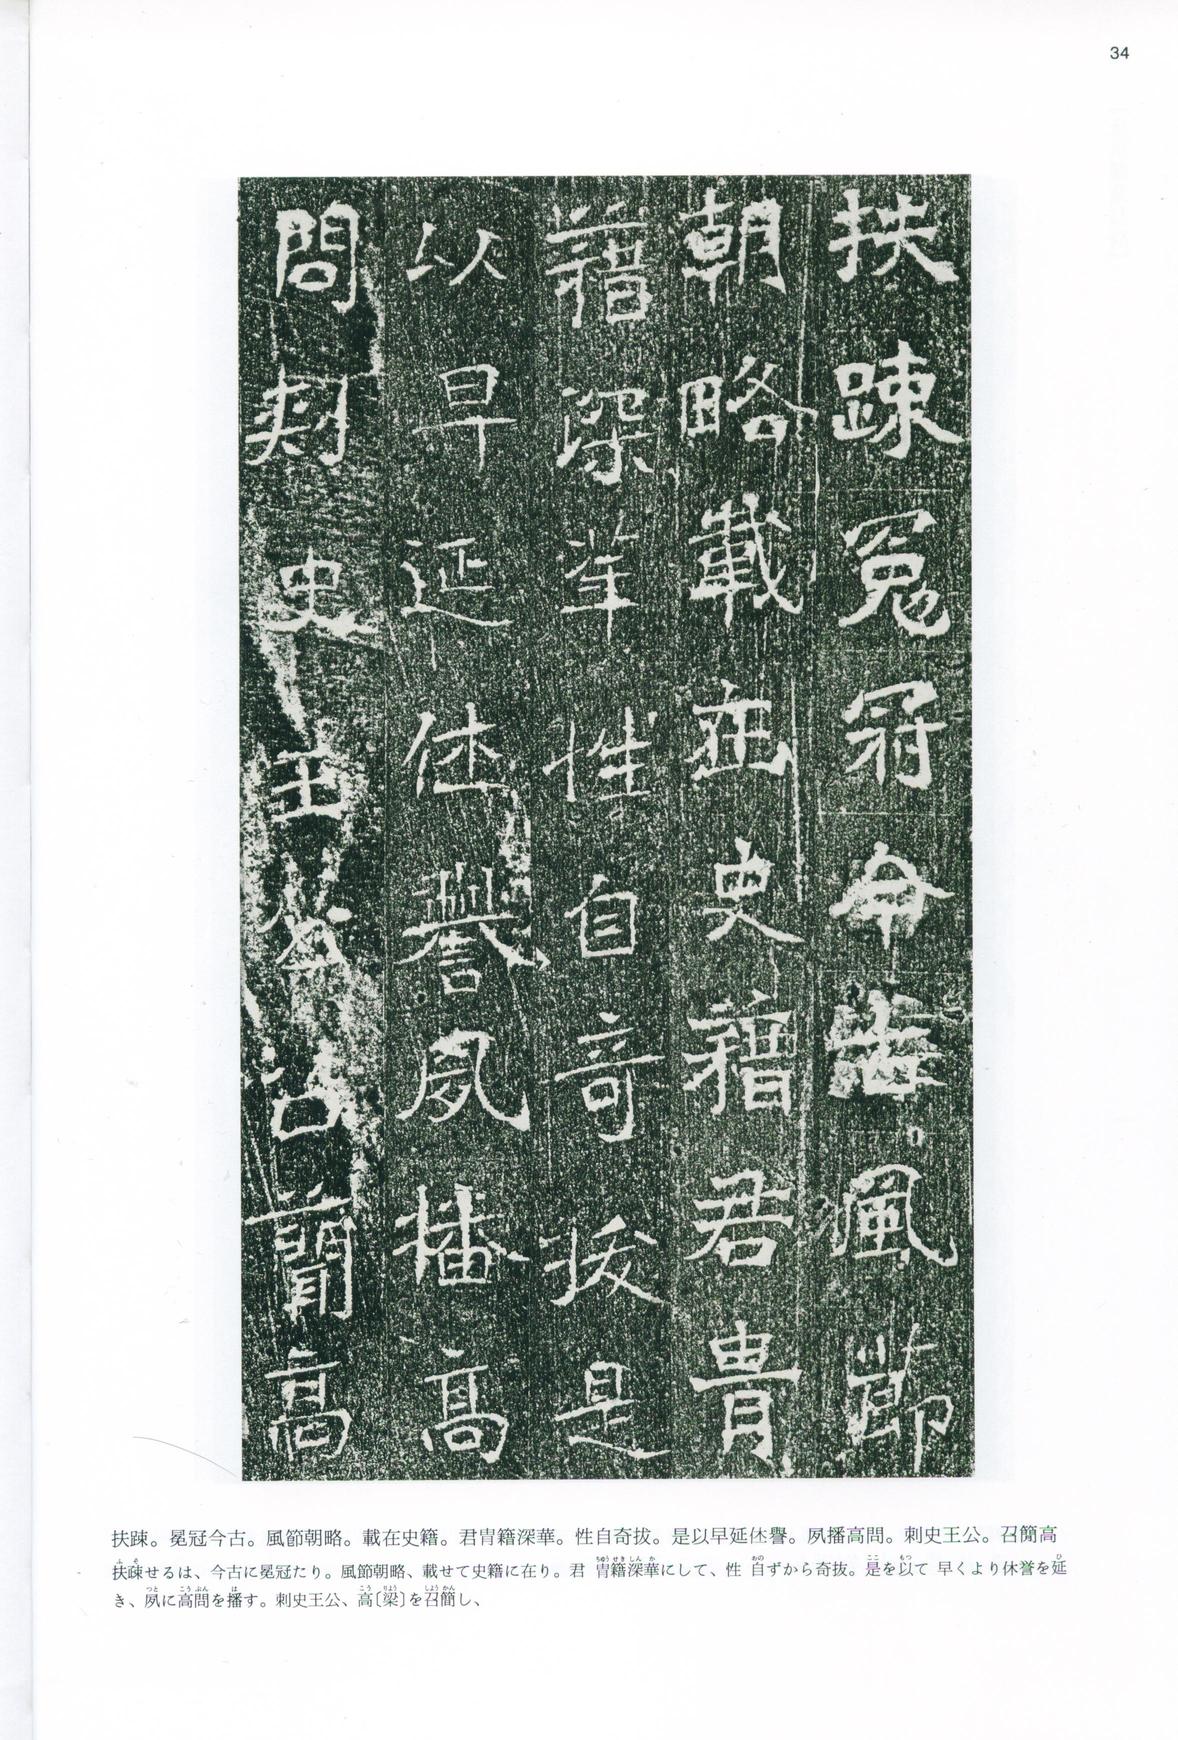 34
扶踈冕冠今古風節
朝略載在史籍君胄
籍深華性自奇抜是
以早延休譽夙播高
問刾史王公召簡高
扶踈。冕冠今古。風節朝略。載在史籍。君胄籍深華。性自奇抜。是以早延休譽。夙播高問。刺史王公。召簡高
扶疎せるは、今古に冕冠たり。風節朝略、載せて史籍に在り。君 胄籍深華にして、性 自ずから奇抜。是を以て 早くより休誉を延
き、夙に高問を播す。刺史王公、高〔梁〕を召簡し、